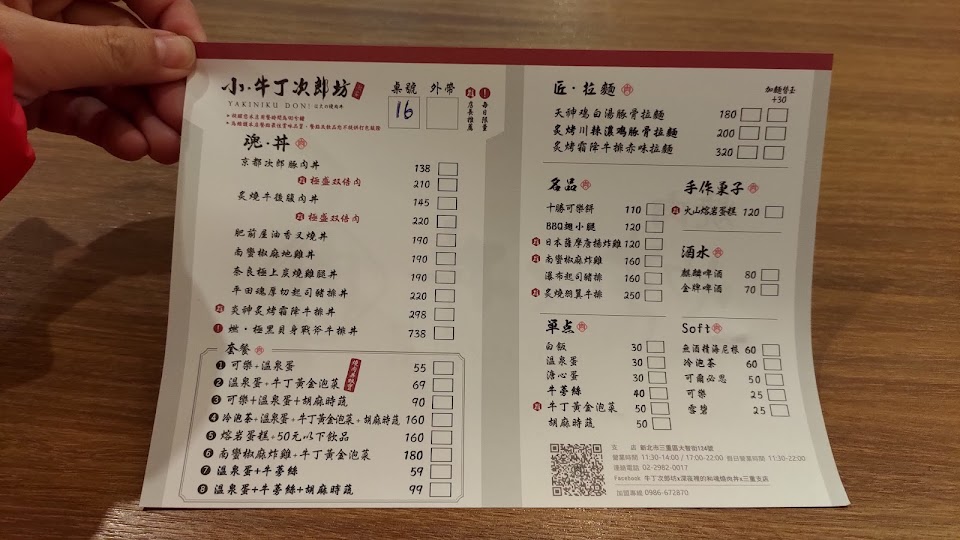 小·牛丁次郎坊
YAKINIKU DON!
桌號 外帶
16
店長推薦
每日限量
魂·丼
京都次郎豚肉丼 138
極盛双倍肉 210
炙燒牛後腹肉丼 145
極盛双倍肉 220
肥前屋油香叉燒丼 190
南蠻椒麻地雞丼 190
奈良極上炭燒雞腿丼 190
平田魂厚切起司豬排丼 220
炎神炙烤霜降牛排丼 298
燃·極黑貝身戰斧牛排丼 738
套餐
1 可樂+溫泉蛋 55
2 溫泉蛋+牛丁黃金泡菜 69
3 可樂+溫泉蛋+胡麻時蔬 90
4 冷泡茶+溫泉蛋+牛丁黃金泡菜+胡麻時蔬 160
5 熔岩蛋糕+50元以下飲品 160
6 南蠻椒麻炸雞+牛丁黃金泡菜 180
7 溫泉蛋+牛蒡絲 59
8 溫泉蛋+牛蒡絲+胡麻時蔬 99
匠·拉麵
加麵替玉
+30
天神鶏白湯豚骨拉麵 180
炙烤川辣濃鶏豚骨拉麵 200
炙烤霜降牛排赤味拉麵 320
名品
十勝可樂餅 110
BBQ翅小腿 120
日本薩摩唐揚炸雞 120
南蠻椒麻炸雞 160
瀑布起司豬排 160
炙燒羽翼牛排 250
手作菓子
火山熔岩蛋糕 120
酒水
麒麟啤酒 80
金牌啤酒 70
單点
白飯 30
溫泉蛋 30
溏心蛋 30
牛蒡絲 40
牛丁黃金泡菜 50
胡麻時蔬 50
Soft
無酒精海尼根 60
冷泡茶 60
可爾必思 50
可樂 25
雪碧 25
支 店 新北市三重區大智街124號
營業時間 11:30-14:00 / 17:00-22:00 假日營業時間 11:30-22:00
連絡電話 02-2982-0017
Facebook 牛丁次郎坊x深夜裡的和魂燒肉丼x三重支店
加盟專線 0986-672870